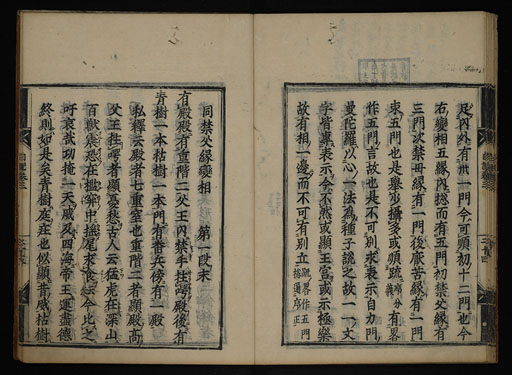 足內外有卅一門今可顯初十二門也今
右變相五緣內惣而有五門初禁父緣有
三門次禁母緣有一門後厭苦緣有一門
束五門也是擧少攝多或順疏 有畧
作五門言故也是不可別求表示自力門
曼陀羅以心一法爲種子說之故一一文
字皆專表示今不然或顯王宮或示極樂
故有相一邊而不可有別立 畧作五門
同禁父緣變相 第一段末
有殿殿有重階二父王內禁手拄腭後有
青樹一本枯樹一本門有番兵傍有一殿
私釋云殿者七重室也重階二者顯殿高
父王拄腭者顯憂愁古人云猛虎在深山
百獸震恐在檻穽中搖尾求食云今比之
可哀貳功掩一天威及四海帝王運盡德
終則如是矣青樹庭莊也似顯昔威枯樹